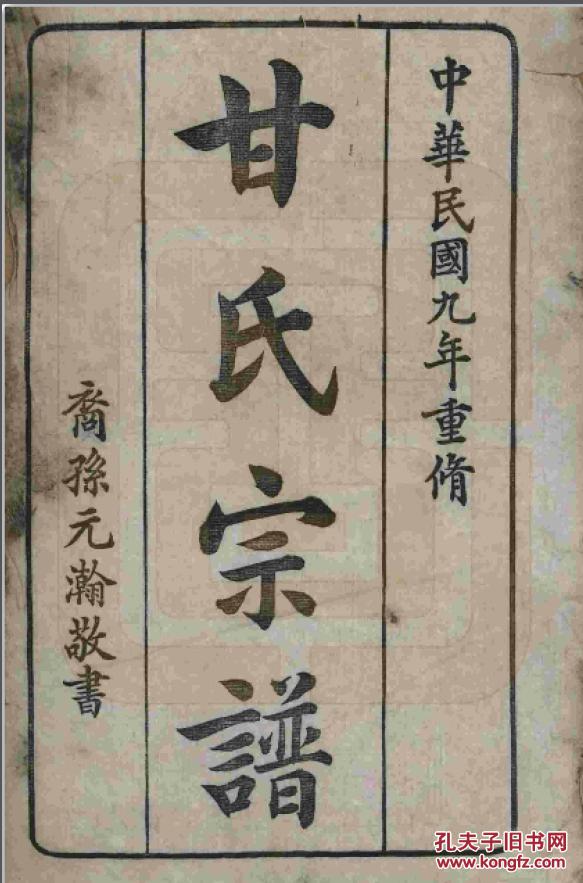 中華民國九年重脩
甘氏宗譜
裔孫元瀚敬書
孔夫子旧书网
www.kongfz.com